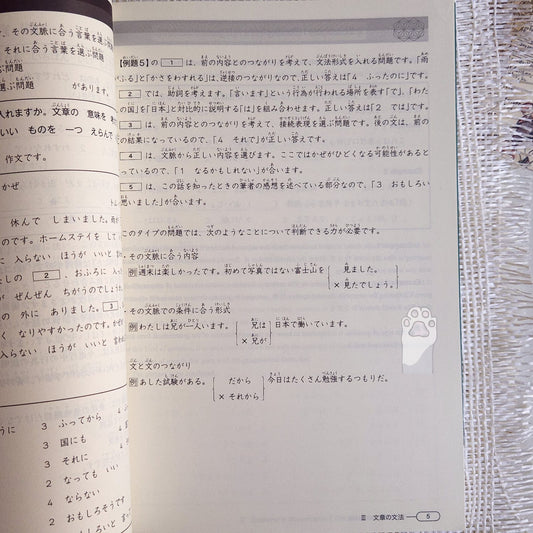 、その文脈に合う言葉を
それに合う言葉を選ぶ問題
ぶ問題
選ぶ問題
があります。
入れますか。文章の 意味を
いい ものを 一つ えらんで
作文です。
かぜ
休んで しまいました。
のです。ホームステイを して
に 入らない ほうが いい
たしの 2 、おふろに 入
が ぜんぜん ちがうのでした。
の 外に ありました。 3
く なりやすかったのです。
入らない ほうが いいと
3 ふってから
3 国にも
3 それに
2 なっても いい
4 ならない
2 おもしろそうです
【例題5】の 1 は、前の内容とのつながりを考えて、文法形式を入れる問題です。「雨
がふる」と「かさをわすれる」は、逆接のつながりなので、正しい答えは「4 ふったのに」です。
2 では、助詞を考えます。「言います」という行為が行われる場所を表す「で」と、「わた
の国」を「日本」と対比的に説明する「は」を組み合わせます。正しい答えは「2 では」です。
3 は、前の内容とのつながりを考えて、接続表現を選ぶ問題です。後の文は、前の
の結果になっているので、「4 それで」が正しい答えです。
4 は、文脈から正しい内容を選びます。ここではかぜがひどくなる可能性があると
っているので、「1 なるかもしれない」が合います。
5 は、この話を知ったときの筆者の感想を述べている部分なので、「3 おもしろい
思いました」が合います。
このタイプの問題では、次のようなことについて判断できる力が必要です。
・その文脈に合う内容
例 週末は楽しかったです。初めて写真ではない富士山を 見ました。
× 見たでしょう。
・その文脈での条件に合う形式
例 わたしは兄が一人います。 兄は 日本で働いています。
× 兄が
文と文のつながり
例 あした試験がある。 だから 今日はたくさん勉強するつもりだ。
× それから
Ⅲ 文章の文法 5